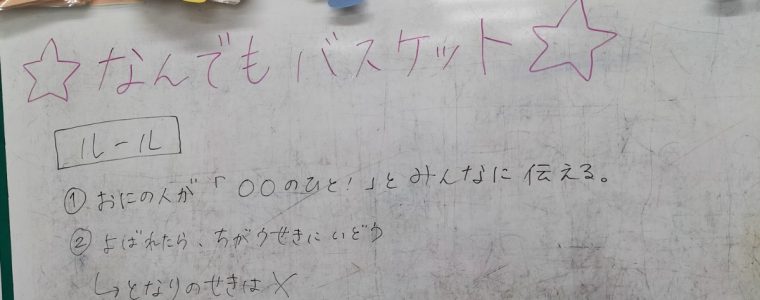 ☆なんでもバスケット☆
ルール
①おにの人が「〇〇のひと!」とみんなに伝える。
②よばれたら、ちがうせきにいどう
↳となりのせきは×